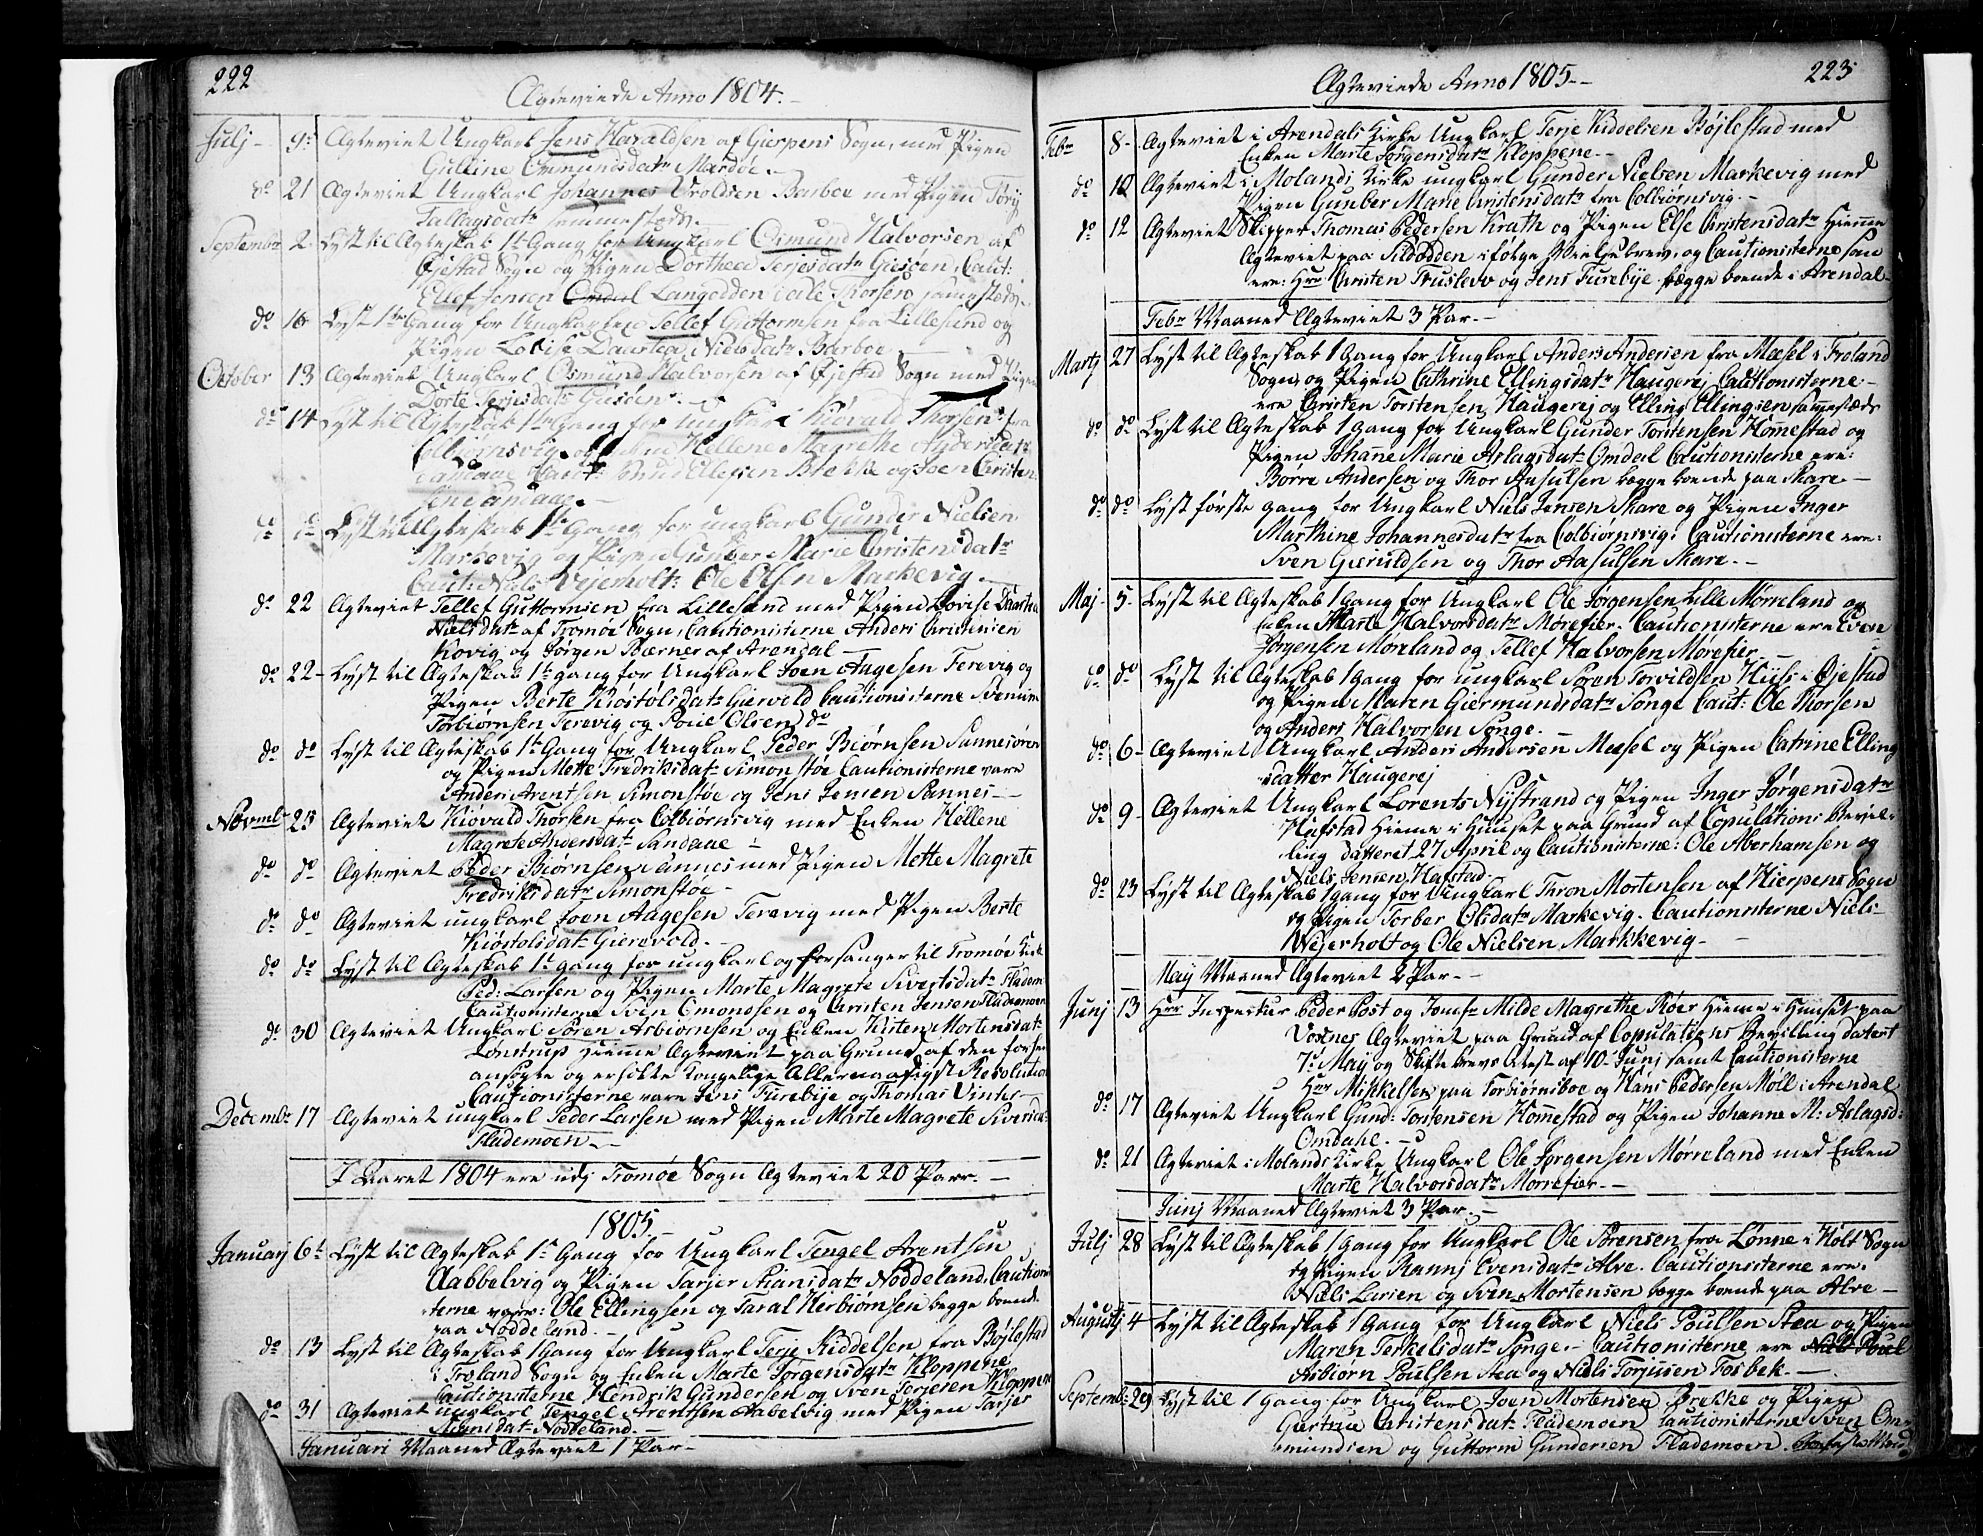 222
Ægteviede Anno 1804.-
Julj - 9de Ægteviet Ungkarl Jens Haraldsen af Gierpens Sogn, med Pigen
Gulline Omundsdatr Marsøe.-
do 21 Ægteviet Ungkarl Johannes Troldsen Barboe med Pigen Tørj
Tallagsdatr sammesteds.-
Septembr 2. Lyst til Ægteskab 1te Gang for Ungkarl Osmund Halvorsen af
Øjestad Sogn og Pigen Dorthea Terjesdatr Giessen, Caut:
Ellef Jensen Omdal Langodden Ole Thorsen sammesteds.
do 16 Lyst 1te Gang for Ungkarlen Tellef Guttormsen fra Lillesund og
Pigen Lovise Daarthea Nielsdatr Barboe
October 13 Ægteviet Ungkarl Osmund Halvorsen af Øjestad Sogn med Pigen
Dorte Terjesdatr Giessen.-
do 14 Lyst til Ægteskab 1te Gang for Ungkarl Kiøvald Thorsen fra
Colbiørnsvig og Enken Hellene Magrethe Andersdatr
Sandaae Caut: Knud Ellefsen Brekke og Joen Christen-
sen Sandaae.-
do do Lyst til Ægteskab 1te Gang for ungkarl Gunder Nielsen
Markevig og Pigen Gunber Marie Christensdatr
Caut: Niels Vejerholt: Ole Olsen Markevig.-
do 22 Ægteviet Tellef Guttormsen fra Lillesand med Pigen Lovise Daartha
Nielsdatr af Tromøe Sogn, Cautionisterne Anders Christensen
Kovig og Jørgen Børner af Arendal -
do 22- Lyst til Ægteskab 1te gang for Ungkarl Joen Aagesen Terevig og
Pigen Berte Kiøstolsdatr Giervold Cautionisterne Svenum
Torbiørnsen Terevig og Povel Olsen do
do do Lyst til Ægteskab 1te Gang for Ungkarl Peder Biørnsen Sannesøren
og Pigen Mette Fredriksdatr Simonstøe Cautionisterne vare
Anders Arentsen Simonstøe og Jens Jensen Sannes.-
Novmbr 23 Ægteviet Kiøvald Thorsen fra Colbiørnsvig med Enken Hellene
Magrete Andersdatr Sandaae -
do do Ægteviet Peder Biørnsen Sannes med Pigen Mette Magrete
Fredriksdatr Simonstøe -
do do Ægteviet ungkarl Joen Aagesen Terevig med Pigen Berte
Kiøstolsdatr Gierevold.-
do do Lyst til Ægteskab 1te gang for ungkarl og forsanger til Tromøe Kirke
Ped: Larsen og Pigen Marte Magrete Sivertsdatr Flademoen
Cautionisterne Sven Omondsen og Christen Jensen Flademoen
do 30 Ægteviet Ungkarl Søren Asbiørnsen og Enken Kisten Mortensdatr
Lønstrup hiemme Ægteviet paa Grund af den forhen
ansøgte og erholte kongelige Allernaadigst Resolution
Cautionisterne vare Jens Furebye og Thomas Vinter
Decembr 17 Ægteviet ungkarl Peder Larsen med Pigen Marte Magrete Sivertsdr
Flademoen.-
I Aaret 1804 ere udj Tromøe Sogn Ægteviet 20 Parr.-
1805.-
Januarj 6te Lyst til Ægteskab 1te Gang for Ungkarl Tengel Arentsen
Aabbelvig og Pigen Tarjer Stiansdatr Noddeland. Cautioni-
sterne vare: Ole Ellingsen og Taral Herbiørnsen begge boende
paa Noddeland.-
do 13 Lyst til Ægteskab 1 Gang for Ungkarl Terje Kiddelsen fra Bøjlestad
i Froland Sogn og Enken Marte Jørgensdatr Kloppene
Cautionisterne Hendrik Gundersen og Sven Terjesen Kloppen
do 31 Ægteviet ungkarl Tengel Arentsen Aabelvig med Pigen Tarjer
Stiansdatr Noddeland.-
Januari Maaned Ægteviet 1 Par.-
223
Ægteviede Anno 1805.-
Febr 8- Ægteviet i Arendals Kirke Ungkarl Terje Kiddelsen Bøjlestad med
Enken Marte Jørgensdatr Kloppene.-
do 10 Ægteviet i Molands Kirke ungkarl Gunder Nielsen Markevig med
Pigen Gunber Marie Christensdatr fra Colbiørnsvig.-
do 12 Ægteviet Skipper Thomas Pedersen Krath og Pigen Else Christensdatr Hiemme
Ægteviet paa Sildodden ifølge Vielsebrev, og Cautionisterne som
ere: Hrr Christen Truslew og Jens Furebye begge boende i Arendal
Febr Maaned Ægteviet 3 Par.-
Martj 27 Lyst til Ægteskab 1 Gang for Ungkarl Anders Andersen fra Mæsel i Froland
Sogn, og Pigen Cathrine Ellingsdatr Haugerej Cautionisterne -
ere Christen Torstensen Haugerej og Elling Ellingsen sammesteds
do do Lyst til Ægteskab 1 Gang for Ungkarl Gunder Torstensen Hommestad og
Pigen Johanne Marie Aslagsdatr Omdal Cautionisterne ere:
Børre Andersen og Thor Aasulsen begge boende paa Skare.-
do do Lyst første gang for Ungkarl Niels Jensen Skare og Pigen Inger
Marthine Johannesdatr fra Colbiørnsvig. Cautionisterne ere:
Sven Gieruldsen og Thor Aasulsen Skare.-
Maj - 5- Lyst til Ægteskab 1 Gang for Ungkarl Ole Jørgensen Lille Mørreland og
Enken Marte Halvorsdatr Mørefier. Cautionisterne ere Even
Jørgensen Møreland og Tellef Halvorsen Mørefier.-
do do Lyst til Ægteskab 1 Gang for ungkarl Søren Torvildsen Hiis i Øjestad
og Pigen Maren Giermundsdatr Songe Caut: Ole Thorsen
og Anders Halvorsen Songe.-
do 6- Ægteviet Ungkarl Anders Andersen Mæsel og Pigen Catrine Elling-
sdatter Haugerej
do 9- Ægteviet Ungkarl Lorents Nystrand og Pigen Inger Jørgensdatr
Hafstad hieme i Huuset paa Grund af Copulations Bevil-
ling datteret 27 April og Cautionisterne: Ole Aberhamsen og
Niels Jensen Hafstad.
do 23 Lyst til Ægteskab 1 gang for Ungkarl Thron Mortensen af Hierpens Sogn
og Pigen Torber Olsdatr Markevig. Cautionisterne Niels
Wejerholt og Ole Nielsen Markkevig.-
Maij Maaned Ægteviet 2 Par.-
Junj 13 Hrr Inspecteur Peder Post og Jomfr Milde Magrethe Røer hieme i Huuset paa
Vosnes Ægteviet paa Grund af Copulations Bevilling datert
7de May og Skiftebrevs Attest af 10. Junj samt Cautionisterne
Hrr Mikkelsen paa Torbiørnsboe og Hans Pedersen Møll i Arendal
do 17 Ægteviet Ungkarl Gund: Torstensen Homestad og Pigen Johanne M: Aslagsd:
Omdahl.-
do 21 Ægteviet i Molands Kirke Ungkarl Ole Jørgensen Mørreland med Enken
Marte Halvorsdatr Mørrefier.-
Junj Maaned Ægteviet 3 Par.-
Julj 28 Lyst til Ægteskab 1 Gang for Ungkarl Ole Sørensen fra Lønne i Holt Sogn
og Pigen Nannj Evensdatr Alve. Cautionisterne ere.
Niels Larsen og Sven Mortensen begge boende paa Alve -
Augustj 4 Lyst til Ægteskab 1 Gang for Ungkarl Niels Poulsen Stea og Pigen
Maren Terkelsdatr Songe.- Cautionisterne ere Niels Poul
Asbiørn Poulsen Stea og Niels Torjussen Fosbek.-
Septemb: 29 Lyst til 1 Gang for Ungkarl Joen Mortensen Brekke og Pigen
Giertrue Christensdatr Flademoen Cautionisterne Sven Om-
mundsen og Guttorm Gundersen Flademoen.